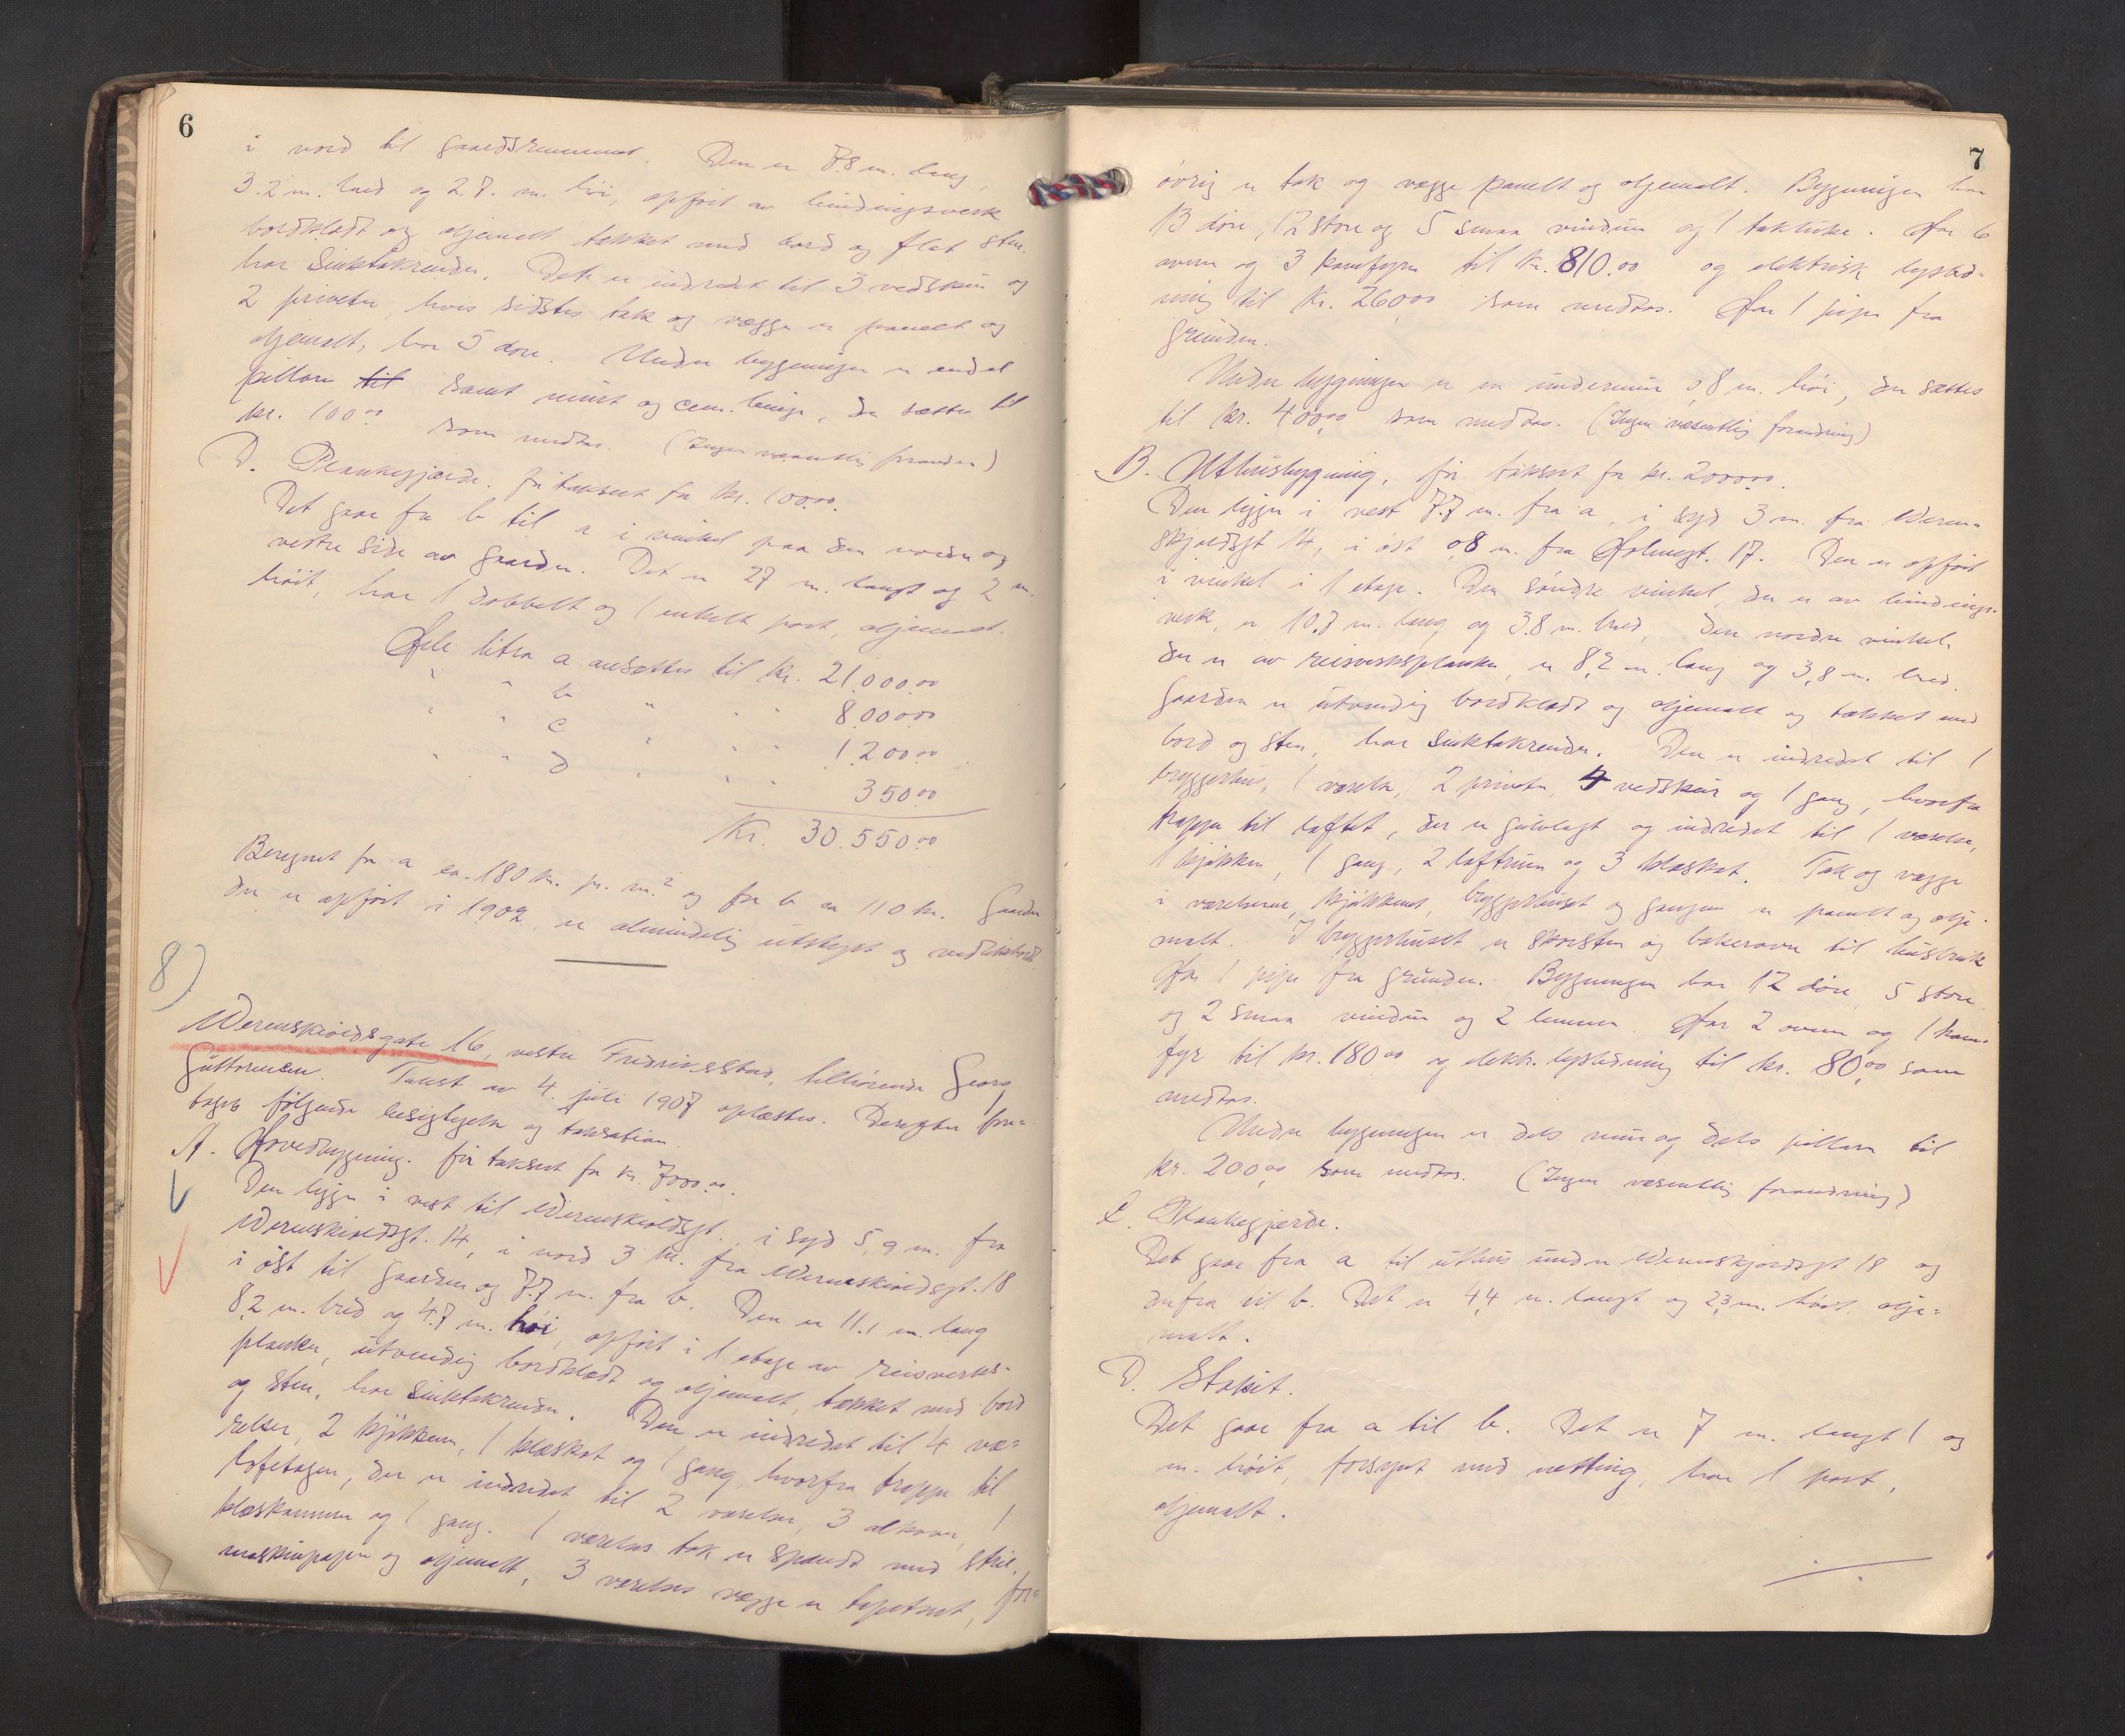 6
i nord til gaardsrummet. Den er 7.8 m. lang,
3.2 m. bred og 2.7. m. høi, opført av bindingsverk
bordklædt og oljemalt tækket med bord og flat sten.
har Sinktakrender. Det er indredet til 3 vedskur og
2 priveter, hvis sidstes tak og vægge er panelt og
oljemalt, har 5 døre. Under bygningen er endel
pillare til samt mur og cem. binge, der sættes til
kr. 100.00 som medtas. (Ingen væsentlig forandr.)
D. Plankegjærde. før taksert for kr. 100.00.
Det gaar fra b til a i vinkel paa den nordre og
vestre side av gaarden. Det er 27 m. langt og 2 m.
høit, har 1 dobbelt og 1 enkelt port, oljemalt.
Hele litra a ansættes til kr. 21.000.00
" " b " " " 8.000.00
" " c " " " 1.200.00
" " d " " " 350.00
Kr. 30.550.00
Beregnet for a ca. 180 kr. pr. m.² og for b ca 110 kr. Gaarden
der er opført i 1902, er almindelig utstyrt og vedlikeholdt
8)
Werenskioldsgate 16, vestre Fredriksstad, tilhørende Georg
Guttormsen. Takst av 4. juli 1907 oplæstes. Derefter fore=
toges følgende besigtigelse og taksation.
A. Hovedbygning. før taksert for kr. 7000.00.
Den ligger i vest til Werenskioldsgt., i syd 5,9 m. fra
Werenskioldsgt. 14, i nord 3 m. fra Werenskioldsgt. 18
i øst til gaarden og 7.7 m. fra b. Den er 11.1 m. lang
8,2 m. bred og 4.7 m. høi, opført i 1 etage av reisverks=
planker, utvendig bordklædt og oljemalt, tækket med bord
og sten, har Sinktakrender. Den er indredet til 4 væ=
relser, 2 kjøkkener, 1 klæskot og 1 gang, hvorfra trappe til
loftetagen, der er indredet til 2 værelser, 3 alkover, 1
klæskammer og 1 gang. 1 værelses tak er spændt med strie,
maskinpapir og oljemalt, 3 værelses vægge er tapetseret, for=
7
øvrig er tak og vægge panelt og oljemalt. Bygningen har
13 døre, 12 store og 5 smaa vinduer og 1 takluke. Har 6
ovner og 3 komfyrer til kr. 810.00 og elektrisk lysled=
ning til kr. 260.00 som medtas. Har 1 pipe fra
grunden.
Under bygningen er en undermur 0,8 m. høi, der sættes
til kr. 400,00 som medtas. (Ingen væsentlig forandring)
B. Uthusbygning, før taksert for kr. 2000.00.
Den ligger i vest 7.7 m. fra a, i syd 3 m. fra Weren=
skjoldsgt 14, i øst 0,8 m. fra Holmegt. 17. Den er opført
i vinkel i 1 etage. Den søndre vinkel, der er av bindings=
verk, er 10.7 m. lang og 3.8 m. bred, den nordre vinkel,
der er av reisverksplanker, er 8,2 m. lang og 3,8 m. bred.
Gaarden er utvendig bordklædt og oljemalt og tækket med
bord og sten, har Sinktakrender. Den er indredet til 1
bryggerhus, 1 værelse, 2 priveter, 4 vedskur og 1 gang, hvorfra
trappe til loftet, der er gulvlagt og indredet til 1 værelse,
1 kjøkken, 1 gang, 2 loftrum og 3 klæskot. Tak og vægge
i værelserne, kjøkkenet, bryggerhuset og gangen er panelt og olje=
malt. I bryggerhuset er skorsten og bakerovn til husbruk
Har 1 pipe fra grunden. Bygningen har 12 døre 5 store
og 2 smaa vinduer og 2 lemmer. Har 2 ovner og 1 kom=
fyr til kr. 180.00 og elektr. lysledning til kr. 80,00 som
medtas.
Under bygningen er dels mur og dels pillare til
kr. 200,00 som medtas. (Ingen væsentlig forandring)
C. Plankegjærde.
Det gaar fra a til uthus under Werenskjoldsgt 18 og
derfra til b. Det er 4,4 m. langt og 2,3 m. høit, olje=
malt.
D. Stakit.
Det gaar fra a til b. Det er 7 m. langt 1 og
m. høit, forsynt med netting, har 1 port,
oljemalt.